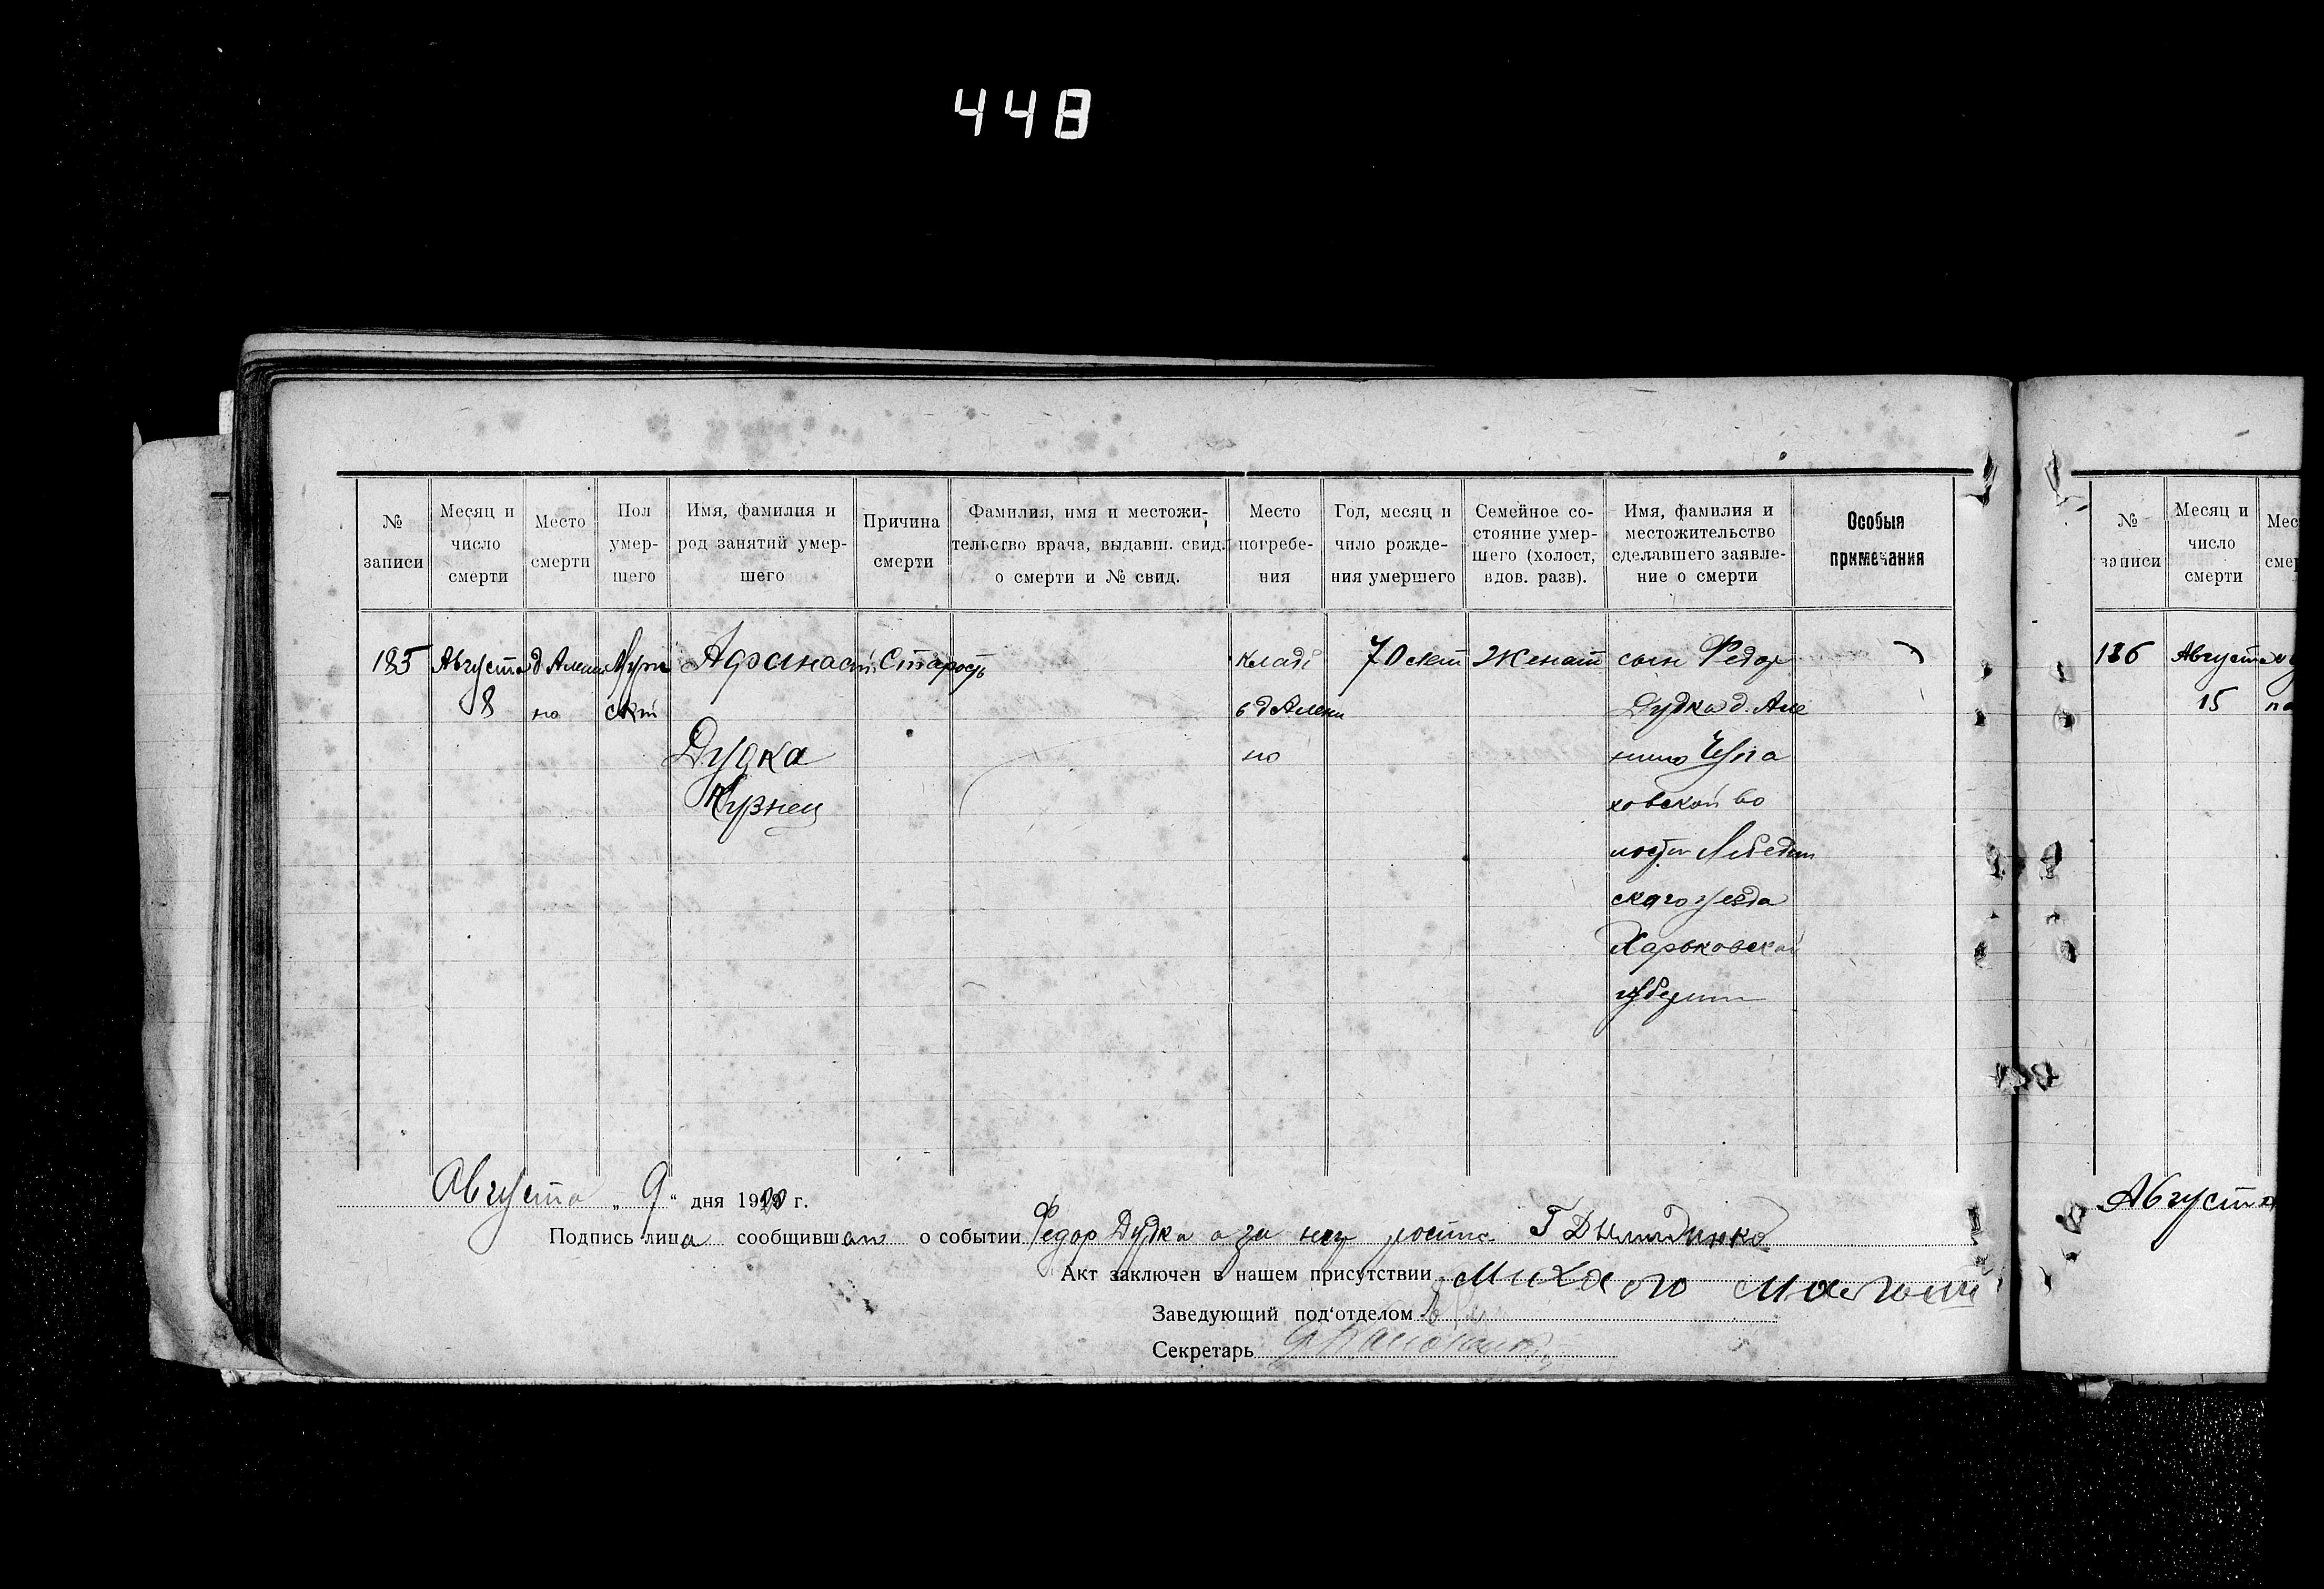 448
№ записи
Месяц и число смерти
Место смерти
Пол умер-шего
Имя, фамилия и род занятий умер-шего
Причина смерти
Фамилия, имя и местожи-тельство врача, выдавш. свид. о смерти и № свид.
Место погребе-ния
Год, месяц и чило рожде-ния умершего
Семейное со-стояние умер-шего (холост, вдов. разв).
Имя, фамилия и местожительство сделавшего заявле-ние о смерти
Особыя примечания
185
Августа
8
д Алени
но
Муж
ский
Афанасий
Дудка
Кузнец
Старость
Клад
в д Алени
но
70 лет
Женат
сын Федор
Дудка д. Але
нино Чупа
ховской во
лости Лебедин
ского уезда
Харьковской
губернии
Августа „ 9 “ дня 1920 г.
Подпись лица сообщивш о событии Федор Дудка а за неу роспис Г
Акт заключен в нашем присутствии
Заведующий под‘отделом
Секретарь
№ записи
Месяц и число смерти
Мес
смер
186
Августа
15
Августа